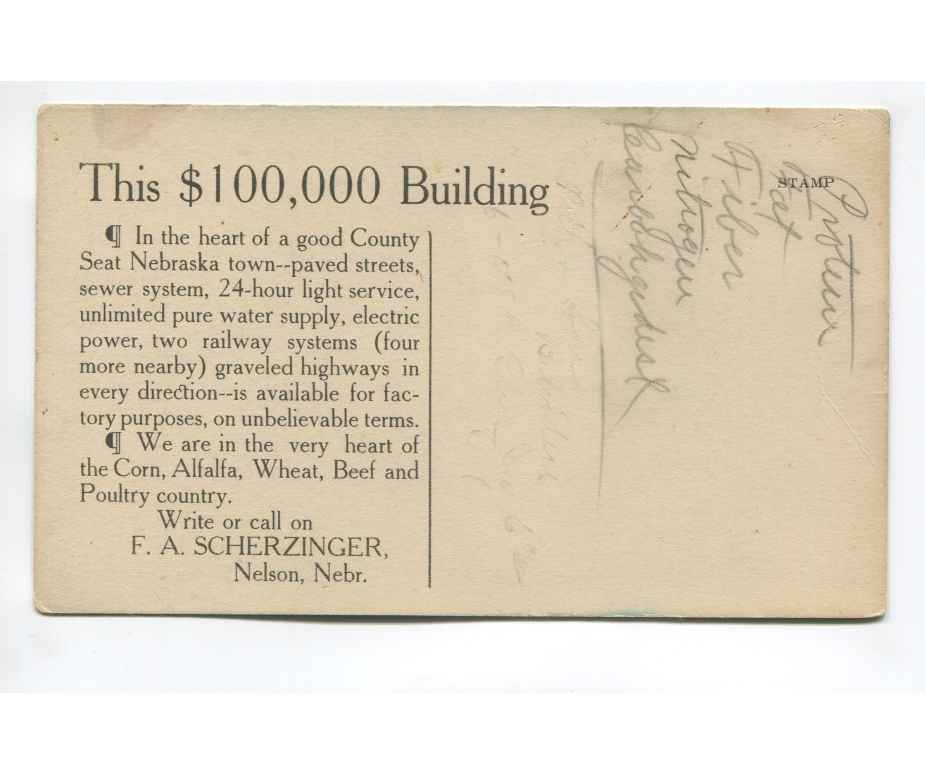 This $100,000 Building
¶ In the heart of a good County
Seat Nebraska town--paved streets,
sewer system, 24-hour light service,
unlimited pure water supply, electric
power, two railway systems (four
more nearby) graveled highways in
every direction--is available for fac-
tory purposes, on unbelievable terms.
¶ We are in the very heart of
the Corn, Alfalfa, Wheat, Beef and
Poultry country.
Write or call on
F. A. SCHERZINGER,
Nelson, Nebr.
STAMP
Protein
Fat
Fiber
Nitrogen